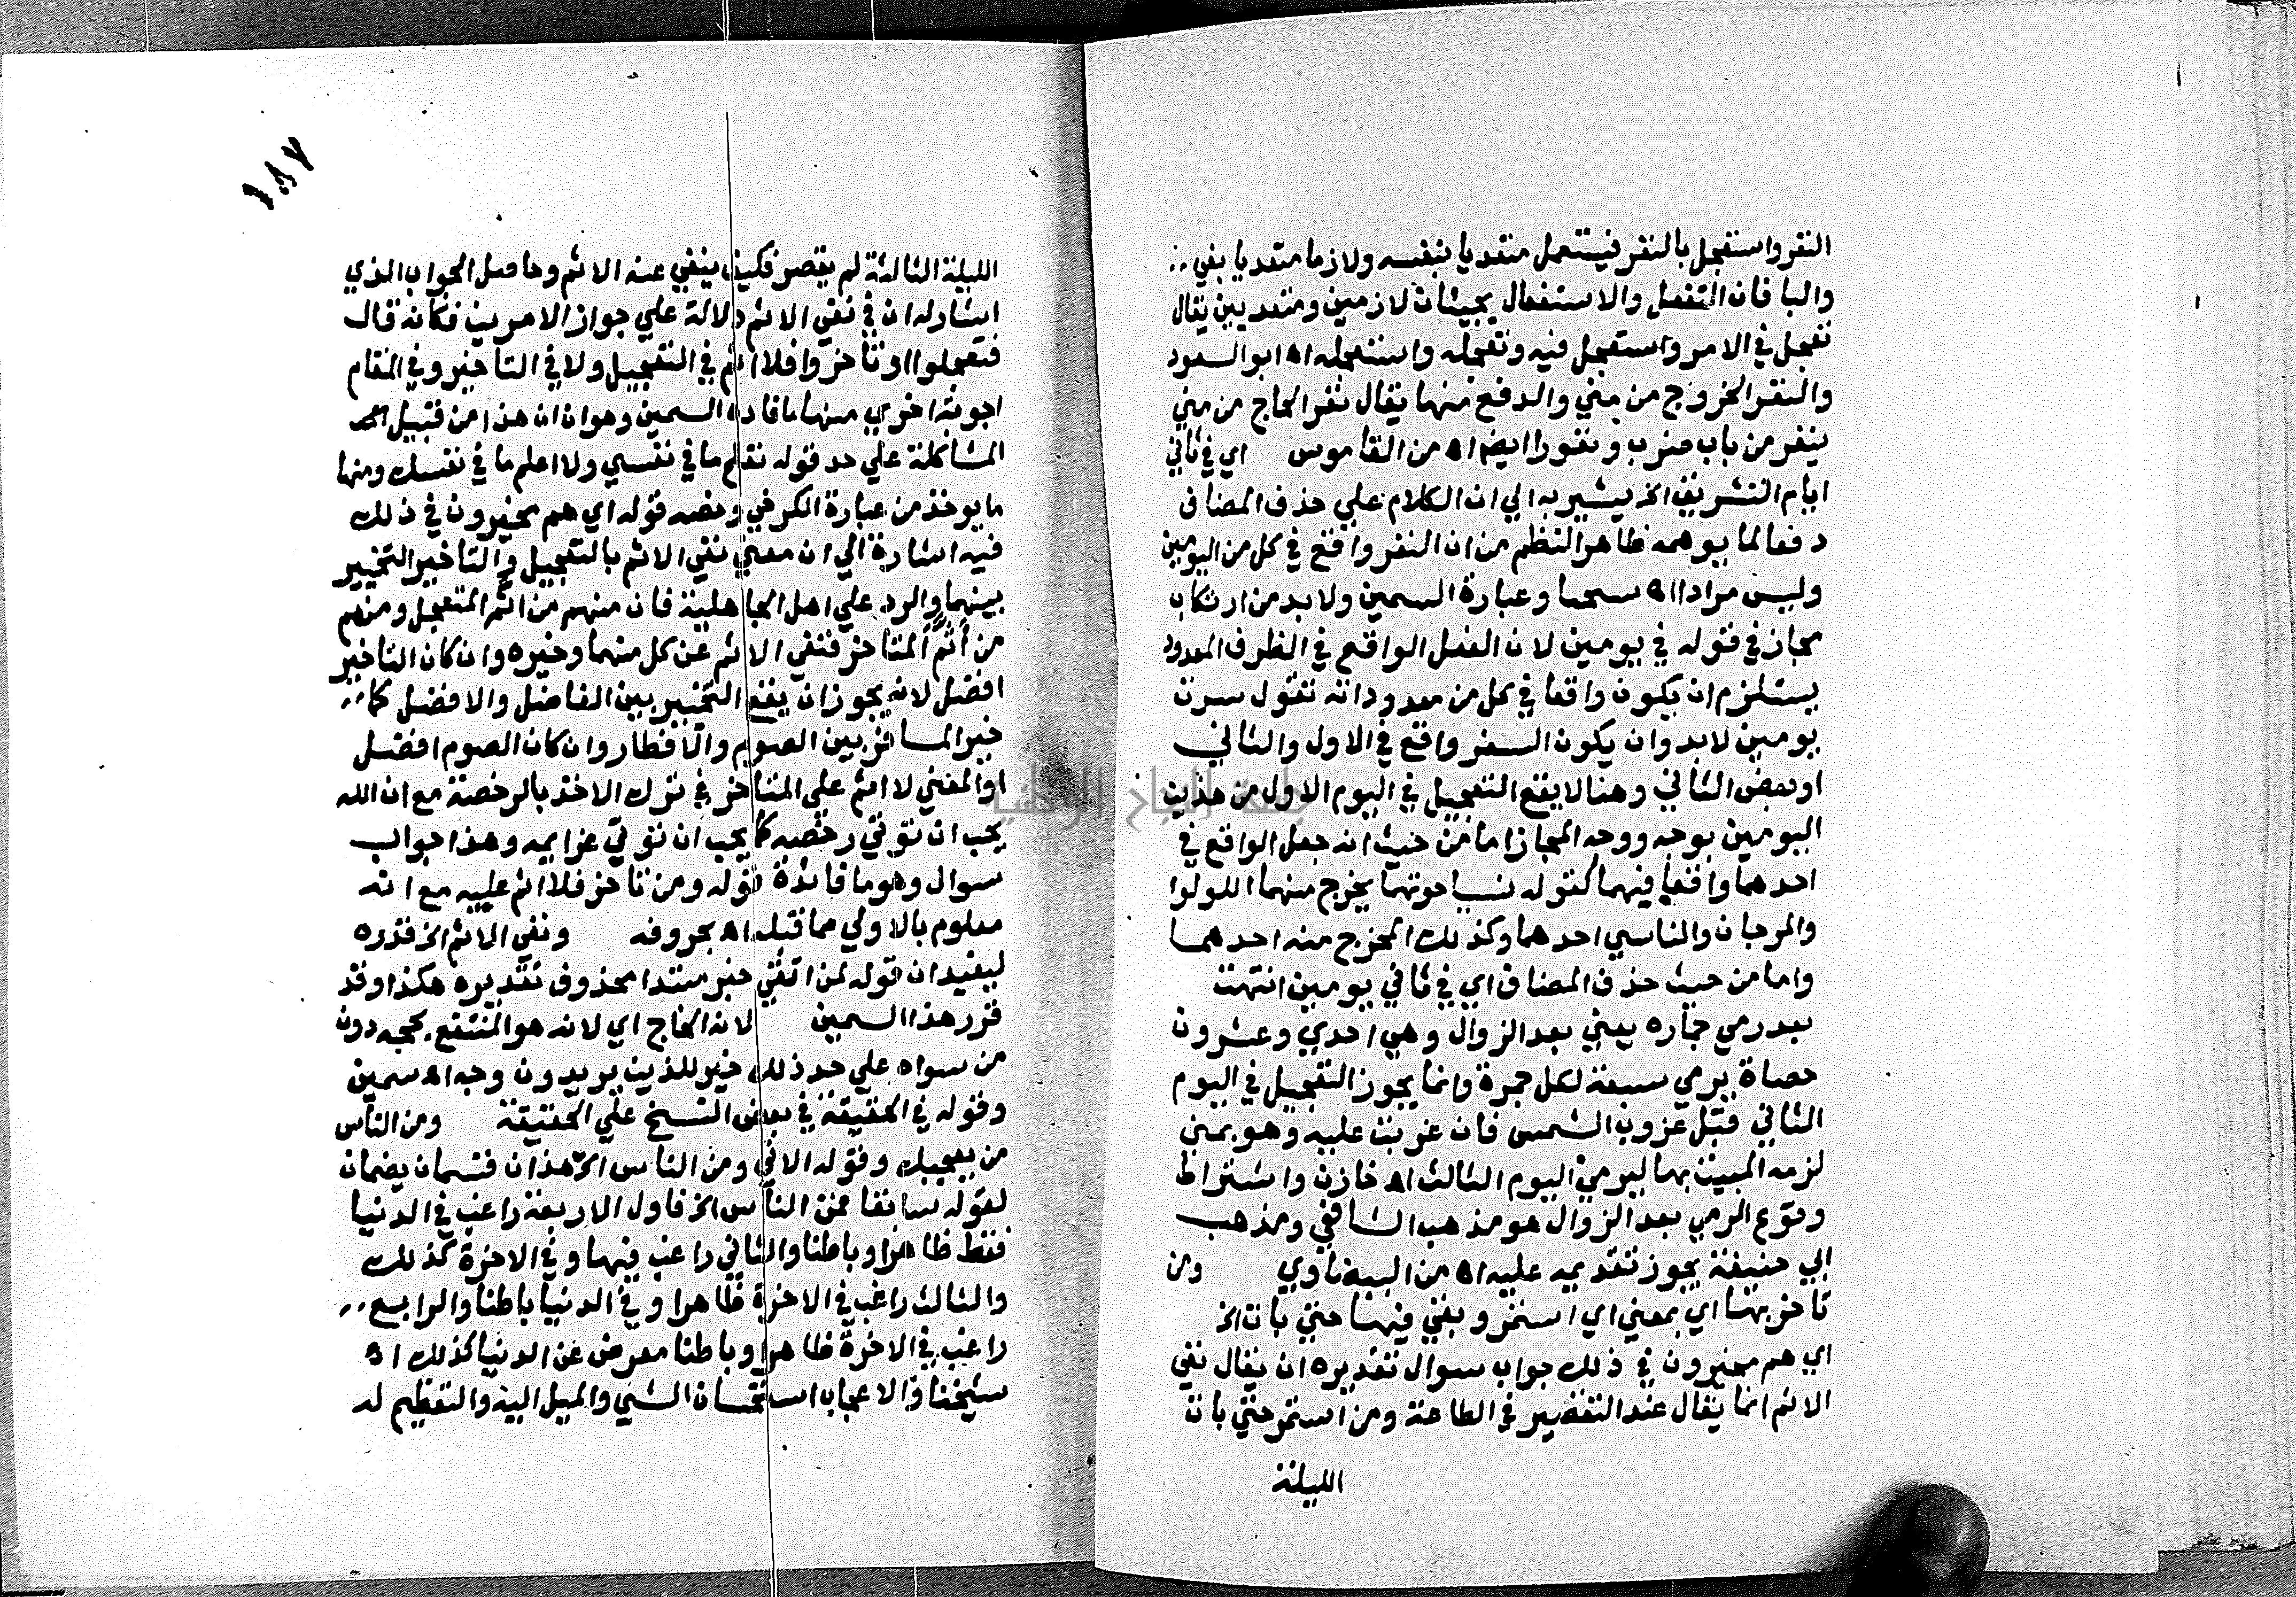 النفر واستعجل بالنفر فيستعمل متعديا بنفسه ولازما متعديا بفي
والبا فان التفعل والاستفعال يجيئان لازمين ومتعديين يقال
تعجل في الامر واستعجل فيه وتعجله واستعجله اه ابو السعود
والنفر الخروج من مني والدفع منها يقال نفر الحاج من مني
ينفر من باب ضرب ونفورا ايضا اه من القاموس اي في ثاني
ايام التشريق الخ يشير به الي ان الكلام علي حذف المضاف
دفعا لما يوهمه ظاهر النظم من ان النفر واقع في كل من اليومين
وليس مرادا اه سحبا وعبارة السمين ولابد من ارتكاب
مجاز في قوله في يومين لان الفعل الواقع في الظرف المعدود
يستلزم ان يكون واقعا في كل من معدوداته تقول سرت
يومين لابد وان يكون السفر واقع في الاول والثاني
او بعض الثاني وهنا لا يقع التعجيل في اليوم الاول من هذين
اليومين بوجه ووجه المجاز اما من حيث انه جعل الواقع في
احدهما واقعا فيهما كقوله نسيا حوتهما يخرج منهما اللولوا
والمرجان والناسي احدهما وكذلك المخرج منه احدهما
واما من حيث حذف المضاف اي في ثاني يومين انتهت
بعد رمي جماره يعني بعد الزوال وهي احدي وعشرون
حصاة يرمي سبعة لكل جمرة وانما يجوز التعجيل في اليوم
الثاني قبل غروب الشمس فان غربت عليه وهو بمني
لزمه المبيت بها ليرمي اليوم الثالث اه خازن واشتراط
وقوع الرمي بعد الزوال هو مذهب الشافعي ومذهب
ابي حنيفة يجوز تقديمه عليه اه من البيضاوي ومن
تاخر بها اي بمعني اي استمر وبقي فيها حتي بات الخ
اي هم مخيرون في ذلك جواب سوال تقديره ان يقال نفي
الاثم انما يقال عند التقصير في الطاعة ومن استمر حتي بات
الليلة
١٨٧
الليلة الثالثة لم يقصر فكيف ينفي عنه الاثم وحاصل الجواب الذي
اشار له ان في نفي الاثم دلالة علي جواز الامرين فكانه قال
فتعجلوا او تأخروا فلا اثم في التعجيل ولا في التاخير وفي المقام
اجوبة اخري منها ما افاده السمين وهو ان هذا من قبيل
المشاكلة علي حد قوله تعلم ما في نفسي ولا اعلم ما في نفسك ومنها
ما يوخذ من عبارة الكرخي ونصه قوله اي هم مخيرون في ذلك
فيه اشارة الي ان معني نفي الاثم بالتعجيل والتاخير التخيير
بينهما والرد علي اهل الجاهلية فان منهم من اثم المتعجل ومنهم
من أثم المتاخر فنفي الاثم عن كل منهما وخيره وان كان التاخير
افضل لانه يجوز ان يقع التخيير بين الفاضل والافضل كما
خير المسافر بين الصوم والافطار وان كان الصوم افضل
او المعني لا اثم علي المتاخر في ترك الاخذ بالرخصة مع ان الله
يحب ان توتي رخصه كما يحب ان توتي عزايمه وهذا جواب
سوال وهو ما فائدة قوله ومن تاخر فلا اثم عليه مع انه
معلوم بالاولي مما قبله اه بحروفه ونفي الاثم الخ قدره
ليفيد ان قوله لمن اتقي خبر مبتدا محذوف تقديره هكذا وقد
قرر هذا السمين لانه الحاج اي لانه هو المنتفع بحجه دون
من سواه علي حد ذلك خير للذين يريدون وجه اه سمين
وقوله في الحقيقة في بعض النسخ علي الحقيقة ومن الناس
من يعجبك وقوله الاتي ومن الناس الخ هذان قسمان يضمان
لقوله سابقا فمن الناس الخ فاول الاربعة راغب في الدنيا
فقط ظاهرا وباطنا والثاني راغب فيها وفي الاخرة كذلك
والثالث راغب في الاخرة ظاهرا وفي الدنيا باطنا والرابع
راغب في الاخرة ظاهرا وباطنا معرض عن الدنيا كذلك اه
شيخنا والاعجاب استحسان الشي والميل اليه والتعظيم له